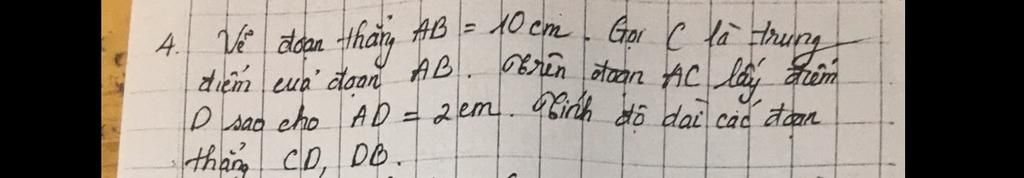 4. Vẽ đoạn thẳng AB = 10 cm. Gọi C là trung
điểm của đoạn AB. Trên đoạn AC lấy điểm
D sao cho AD = 2 cm. Tính độ dài các đoạn
thẳng CD, DB.